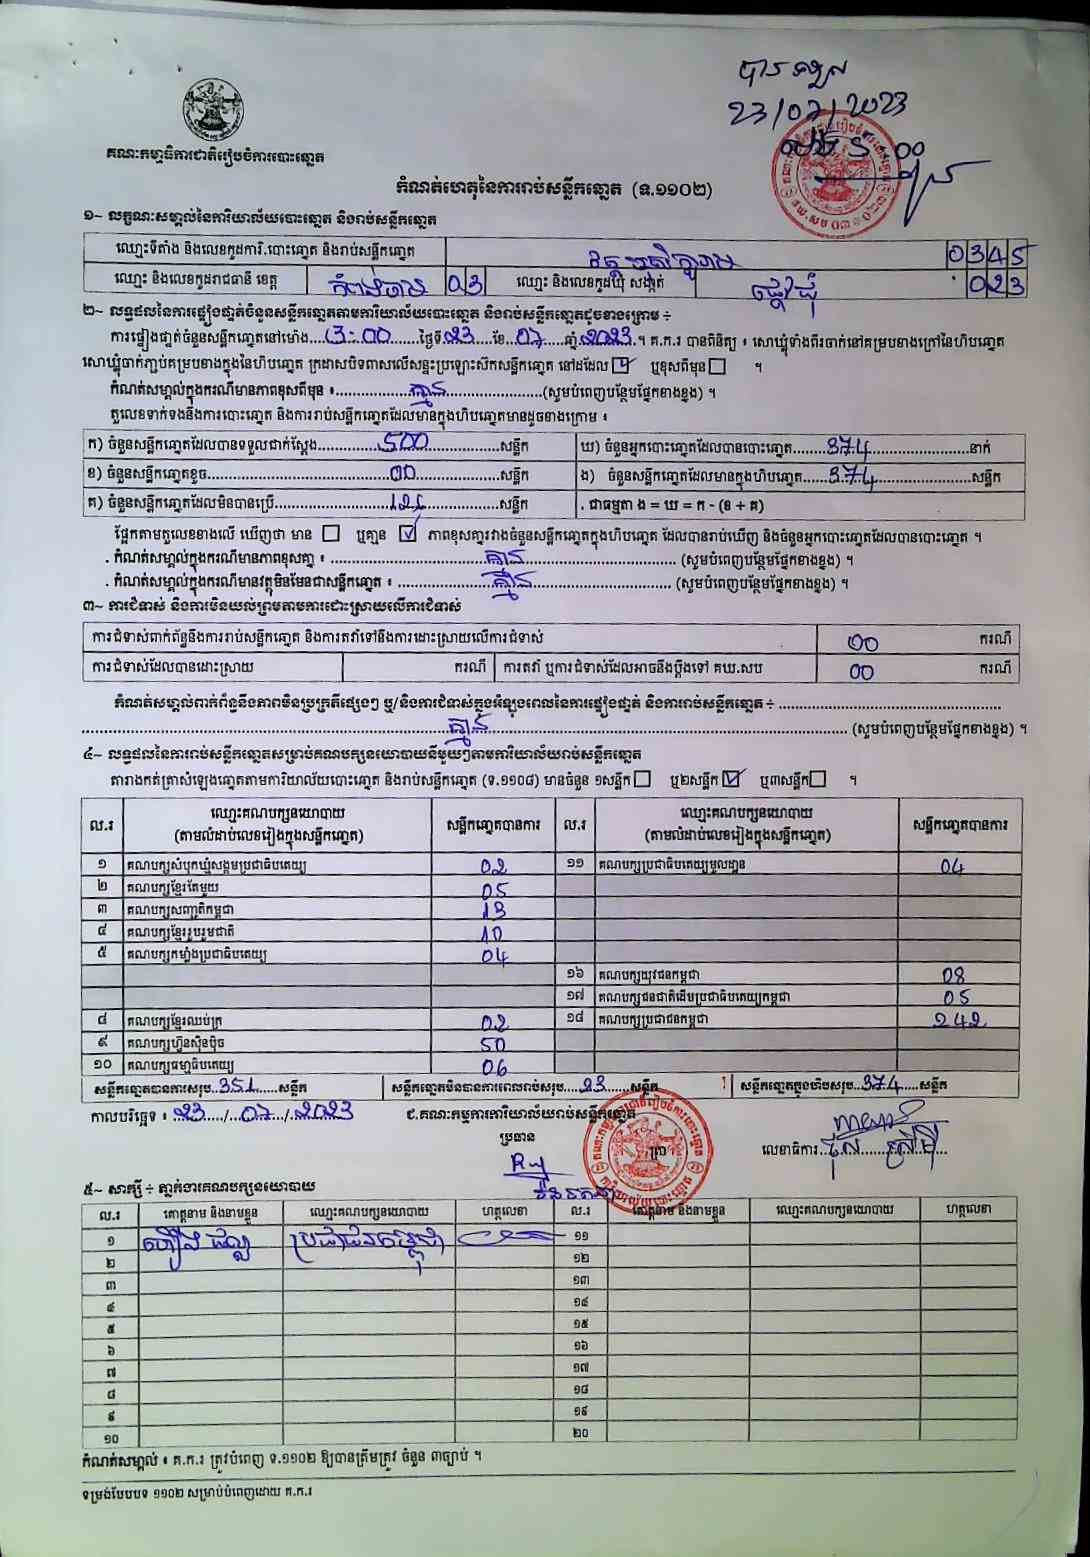 23/07/2023
គណៈកម្មាធិការជាតិរៀបចំការបោះឆ្នោត
កំណត់ហេតុនៃការរាប់សន្លឹកឆ្នោត (ទ.១១០២)
១~ លក្ខណៈសម្គាល់នៃការិយាល័យបោះឆ្នោត និងរាប់សន្លឹកឆ្នោត
ឈ្មោះទីតាំង និងលេខកូដការិ.បោះឆ្នោត និងរាប់សន្លឹកឆ្នោត 0345
ឈ្មោះ និងលេខកូដរាជធានី ខេត្ត កំពង់ចាម 03 ឈ្មោះ និងលេខកូដឃុំ សង្កាត់ 023
២~ លទ្ធផលនៃការផ្ទៀងផ្ទាត់ចំនួនសន្លឹកឆ្នោតតាមការិយាល័យបោះឆ្នោត និងរាប់សន្លឹកឆ្នោតដូចខាងក្រោម ÷
ការផ្ទៀងផ្ទាត់ចំនួនសន្លឹកឆ្នោតនៅម៉ោង...3:00......ថ្ងៃទី.23......ខែ..07......ឆ្នាំ.2023.។ គ.ក.រ បានពិនិត្យ ៖ សោឃ្លុំទាំងពីរចាក់នៅគម្របខាងក្រៅនៃហិបឆ្នោត
សោឃ្លុំចាក់ភ្ជាប់គម្របខាងក្នុងនៃហិបឆ្នោត ក្រដាសបិទពាសលើសន្ទះប្រឡោះស៊កសន្លឹកឆ្នោត នៅដដែល ☑ ឬខុសពីមុន ☐ ។
កំណត់សម្គាល់ក្នុងករណីមានភាពខុសពីមុន ៖.............គ្មាន......................(សូមបំពេញបន្ថែមផ្នែកខាងខ្នង) ។
តួលេខទាក់ទងនឹងការបោះឆ្នោត និងការរាប់សន្លឹកឆ្នោតដែលមានក្នុងហិបឆ្នោតមានដូចខាងក្រោម ៖
ក) ចំនួនសន្លឹកឆ្នោតដែលបានទទួលជាក់ស្តែង............500............សន្លឹក ឃ) ចំនួនអ្នកបោះឆ្នោតដែលបានបោះឆ្នោត........374................នាក់
ខ) ចំនួនសន្លឹកឆ្នោតខូច..............................00..............សន្លឹក ង) ចំនួនសន្លឹកឆ្នោតដែលមានក្នុងហិបឆ្នោត......374...............សន្លឹក
គ) ចំនួនសន្លឹកឆ្នោតដែលមិនបានប្រើ..................126................សន្លឹក . ជាធម្មតា ង = ឃ = ក - (ខ + គ)
ផ្អែកតាមតួលេខខាងលើ ឃើញថា មាន ☐ ឬគ្មាន ☑ ភាពខុសគ្នារវាងចំនួនសន្លឹកឆ្នោតក្នុងហិបឆ្នោត ដែលបានរាប់ឃើញ និងចំនួនអ្នកបោះឆ្នោតដែលបានបោះឆ្នោត ។
. កំណត់សម្គាល់ក្នុងករណីមានភាពខុសគ្នា ៖ ........................គ្មាន........................ (សូមបំពេញបន្ថែមផ្នែកខាងខ្នង) ។
. កំណត់សម្គាល់ក្នុងករណីមានវត្ថុមិនមែនជាសន្លឹកឆ្នោត ៖ ..............គ្មាន........................ (សូមបំពេញបន្ថែមផ្នែកខាងខ្នង) ។
៣~ ការជំទាស់ និងការមិនយល់ព្រមតាមការដោះស្រាយលើការជំទាស់
ការជំទាស់ពាក់ព័ន្ធនឹងការរាប់សន្លឹកឆ្នោត និងការតវ៉ាទៅនឹងការដោះស្រាយលើការជំទាស់ 00 ករណី
ការជំទាស់ដែលបានដោះស្រាយ ករណី ការតវ៉ា ឬការជំទាស់ដែលអាចនឹងប្តឹងទៅ គឃ.សប 00 ករណី
កំណត់សម្គាល់ពាក់ព័ន្ធនឹងភាពមិនប្រក្រតីផ្សេងៗ ឬ/និងការជំទាស់ក្នុងអំឡុងពេលនៃការផ្ទៀងផ្ទាត់ និងការរាប់សន្លឹកឆ្នោត ÷ ........................................
................................................គ្មាន................................................ (សូមបំពេញបន្ថែមផ្នែកខាងខ្នង) ។
៤~ លទ្ធផលនៃការរាប់សន្លឹកឆ្នោតសម្រាប់គណបក្សនយោបាយនីមួយៗតាមការិយាល័យរាប់សន្លឹកឆ្នោត
តារាងកត់ត្រាសំឡេងឆ្នោតតាមការិយាល័យបោះឆ្នោត និងរាប់សន្លឹកឆ្នោត (ទ.១១០៨) មានចំនួន ១សន្លឹក ☐ ឬ២សន្លឹក ☑ ឬ៣សន្លឹក ☐ ។
ល.រ ឈ្មោះគណបក្សនយោបាយ (តាមលំដាប់លេខរៀងក្នុងសន្លឹកឆ្នោត) សន្លឹកឆ្នោតបានការ ល.រ ឈ្មោះគណបក្សនយោបាយ (តាមលំដាប់លេខរៀងក្នុងសន្លឹកឆ្នោត) សន្លឹកឆ្នោតបានការ
១ គណបក្សសំបុកឃ្មុំសង្គមប្រជាធិបតេយ្យ 02 ១១ គណបក្សប្រជាធិបតេយ្យមូលដ្ឋាន 04
២ គណបក្សខ្មែរតែមួយ 05
៣ គណបក្សសញ្ជាតិកម្ពុជា 13
៤ គណបក្សខ្មែររួបរួមជាតិ 10
៥ គណបក្សកម្លាំងប្រជាធិបតេយ្យ 04
១៦ គណបក្សយុវជនកម្ពុជា 08
១៧ គណបក្សជនជាតិដើមប្រជាធិបតេយ្យកម្ពុជា 05
៨ គណបក្សខ្មែរឈប់ក្រ 02 ១៨ គណបក្សប្រជាជនកម្ពុជា 242
៩ គណបក្សហ៊្វុនស៊ិនប៉ិច 50
១០ គណបក្សធម្មាធិបតេយ្យ 06
សន្លឹកឆ្នោតបានការសរុប..351......សន្លឹក សន្លឹកឆ្នោតមិនបានការពេលរាប់សរុប....23......សន្លឹក សន្លឹកឆ្នោតក្នុងហិបសរុប..374.....សន្លឹក
កាលបរិច្ឆេទ ៖ .23...../...07..../..2023 ជ.គណៈកម្មការការិយាល័យរាប់សន្លឹកឆ្នោត
ប្រធាន
លេខាធិការ
៥~ សាក្សី ÷ ភ្នាក់ងារគណបក្សនយោបាយ
ល.រ គោត្តនាម និងនាមខ្លួន ឈ្មោះគណបក្សនយោបាយ ហត្ថលេខា ល.រ គោត្តនាម និងនាមខ្លួន ឈ្មោះគណបក្សនយោបាយ ហត្ថលេខា
១ ប្រជាជនកម្ពុជា ១១
២ ១២
៣ ១៣
៤ ១៤
៥ ១៥
៦ ១៦
៧ ១៧
៨ ១៨
៩ ១៩
១០ ២០
កំណត់សម្គាល់ ៖ គ.ក.រ ត្រូវបំពេញ ទ.១១០២ ឱ្យបានត្រឹមត្រូវ ចំនួន ៣ច្បាប់ ។
ទម្រង់បែបបទ ១១០២ សម្រាប់បំពេញដោយ គ.ក.រ